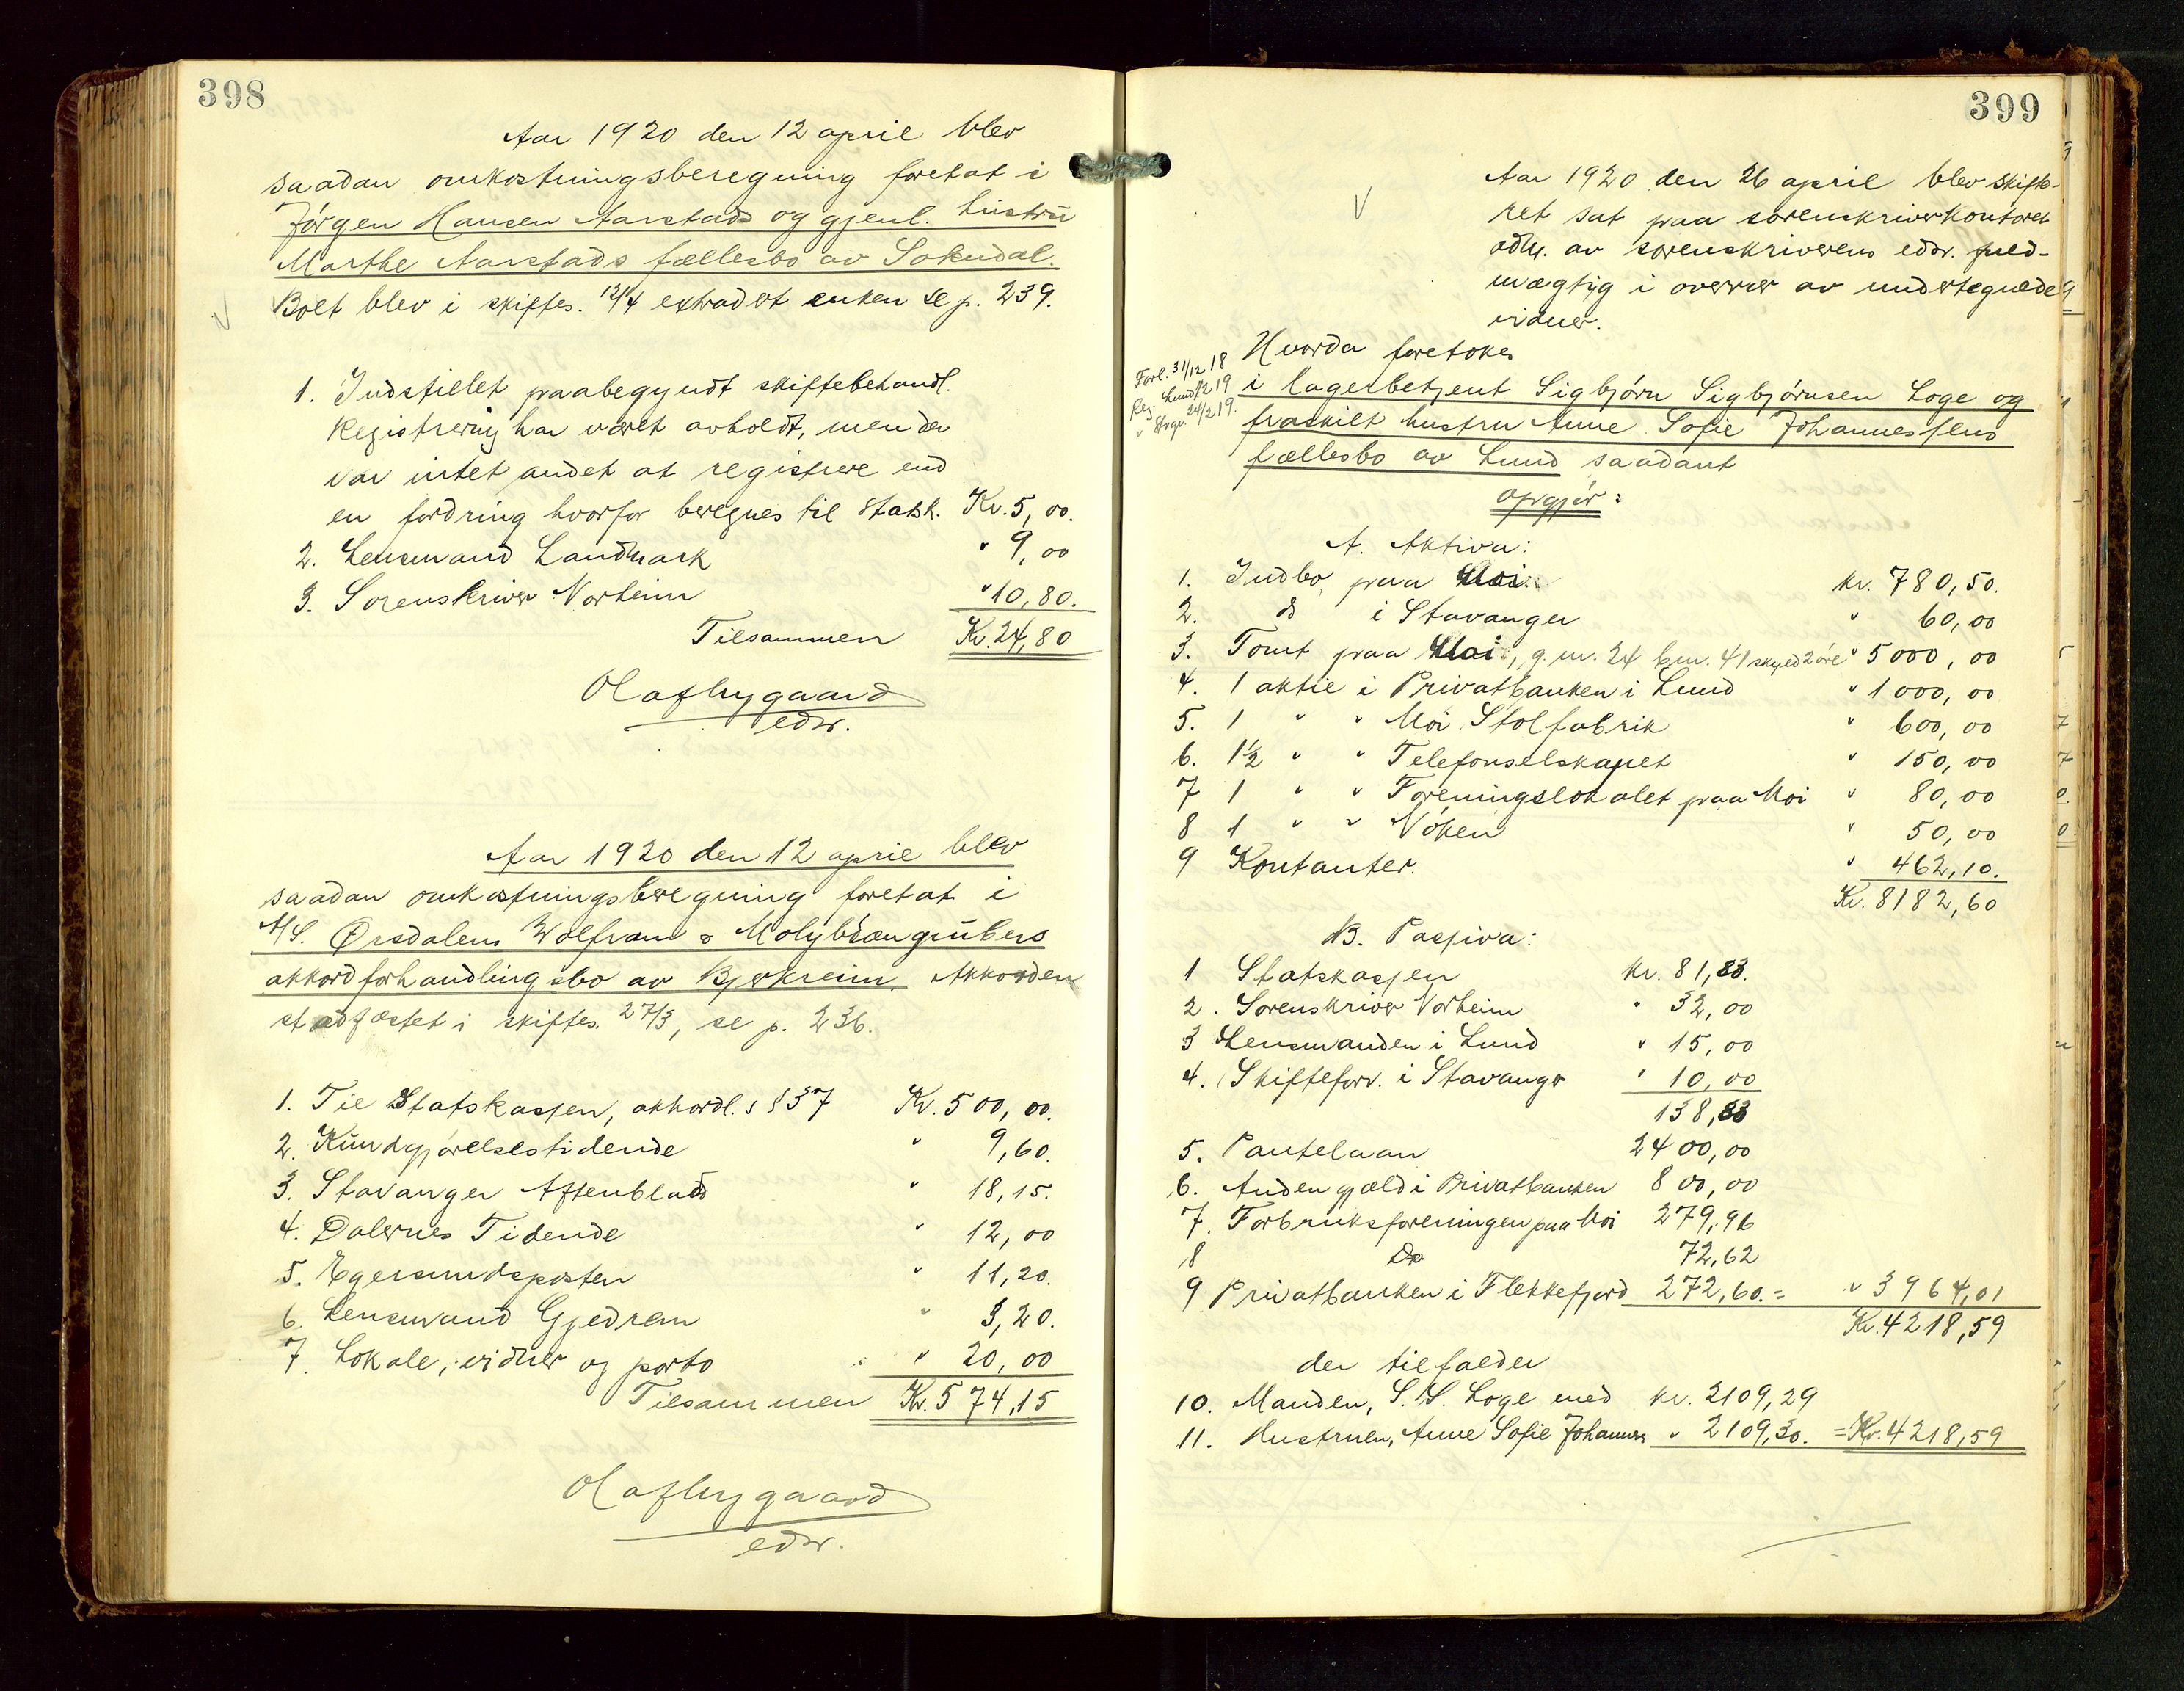 398
Aar 1920 den 12 april blev
saadan omkostningsberegning foretat i
Jörgen Hansen Aarstads og gjenl. hustru
Marthe Aarstads fællesbo av Sokndal.
Boet blev i skiftes. 12/4 extradert enken se p. 239.
1. Indstillet paabegyndt skiftebehandl.
Registrering har været avholdt, men der
var intet andet at registrere end
en fordring hvorfor beregnes til Statsk. Kr. 5,00.
2. Lensmand Landmark " 9,00
3. Sorenskriver Norheim " 10,80.
Tilsammen Kr. 24,80
Olaf Nygaard
edsv.
Aar 1920 den 12 april blev
saadan omkostningsberegning foretat i
A/S. Ørsdalens Wolfram & Molybdængrubers
akkordforhandlingsbo av Bjerkreim. Akkorden
stadfæstet i skiftes. 27/3, se p. 236.
1. Til Statskassen, akkordl. s § 37 Kr. 500,00.
2. Kundgjörelsestidende " 9,60.
3. Stavanger Aftenblad " 18,15.
4. Dalernes Tidende " 12,00
5. Egersundsposten " 11,20.
6. Lensmand Gjedrem " 3,20.
7. Lokale, vidner og porto " 20,00
Tilsammen Kr. 574,15
Olaf Nygaard
edsv.
399
Aar 1920 den 26 april blev skifte-
ret sat paa sorenskriverkontoret
adm. av sorenskriverens edsv. fuld-
mægtig i overvær av undertegnede
vidner.
Hvorda foretokes
Forl. 31/12 18
Reg. Lund 1/2 19
" Stvgr. 24/2 19.
i lagerbetjent Sigbjörn Sigbjörnsen Loge og
fraskilt hustru Anne Sofie Johannessens
fællesbo av Lund saadant
opgjör:
A. Aktiva:
1. Indbo paa Moi kr. 780,50.
2. do i Stavanger " 60,00
3. Tomt paa Moi, g. nr. 24 bnr. 41 skyld 2 öre " 5000,00
4. 1 aktie i Privatbanken i Lund " 1000,00
5. 1 " " Moi Stolfabrik " 600,00
6. 1½ " " Telefonselskapet " 150,00
7 1 " " Foreningslokalet paa Moi " 80,00
8 1 " " Nöken " 50,00
9 Kontanter. " 462,10.
Kr. 8182,60
B. Passiva:
1 Statskassen kr. 81,83.
2. Sorenskriver Norheim " 32,00
3 Lensmanden i Lund " 15,00
4. Skifteforv. i Stavanger " 10,00
138,83
5. Pantelaan 2400,00
6. Anden gjæld i Privatbanken 800,00
7. Forbruksforeningen paa Moi 279,96
8 Do 72,62
9 Privatbanken i Flekkefjord 272,60. = " 3964,01
Kr. 4218,59
der tilfalder
10. Manden, S. S. Loge med kr. 2109,29
11. Hustruen, Anne Sofie Johannes " 2109,30. = Kr. 4218,59